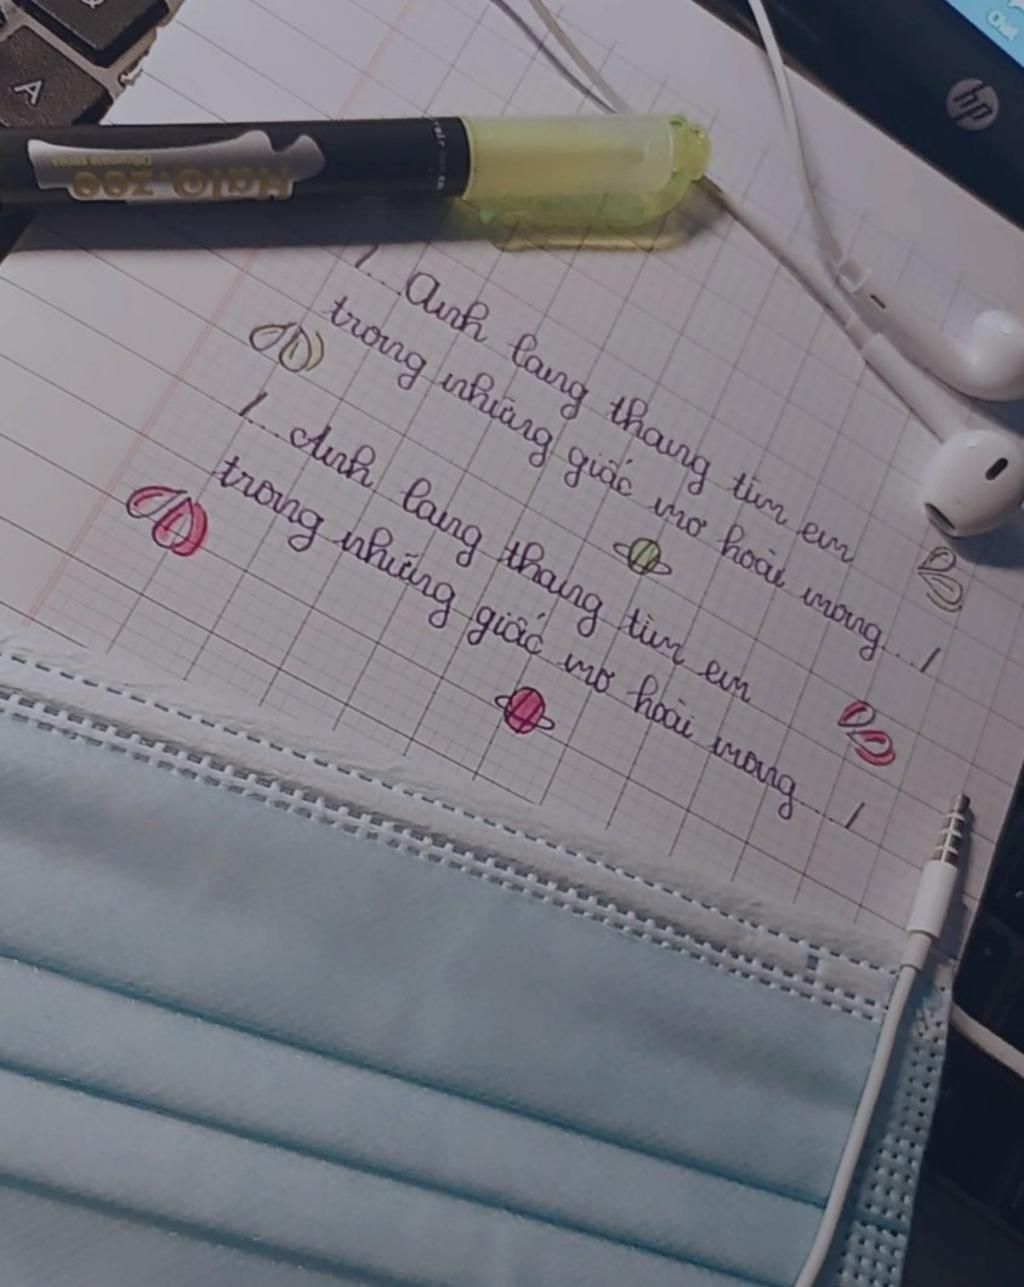 Chat
hp
A
Halo.zee
/...Anh lang thang tìm em
trong những giấc mơ hoài mong.../
/...Anh lang thang tìm em
trong những giấc mơ hoài mong.../